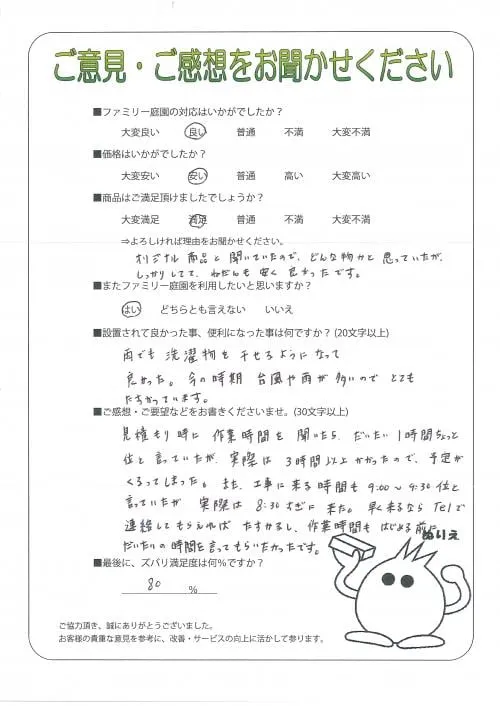 ご意見・ご感想をお聞かせください
■ファミリー庭園の対応はいかがでしたか？
大変良い 良い 普通 不満 大変不満
■価格はいかがでしたか？
大変安い 安い 普通 高い 大変高い
■商品はご満足頂けましたでしょうか？
大変満足 満足 普通 不満 大変不満
⇒よろしければ理由をお聞かせください。
オリジナル商品と聞いていたので、どんな物かと思っていたが、
しっかりしてて、ねだんも安く良かったです。
■またファミリー庭園を利用したいと思いますか？
はい どちらとも言えない いいえ
■設置されて良かった事、便利になった事は何ですか？（20文字以上）
雨でも洗濯物を干せるようになって
良かった。今の時期台風や雨が多いのでとても
たすかっています。
■ご感想・ご要望などをお書きくださいませ。（30文字以上）
見積もり時に作業時間を聞いたら、だいたい1時間ちょっと
位と言っていたが、実際は3時間以上かかったので、予定が
くるってしまった。また、工事に来る時間も9:00～9:30位と
言っていたが実際は8:30すぎに来た。早く来るならTelで
連絡してもらえればたすかるし、作業時間もはじめる前に
だいたいの時間を言ってもらいたかったです。
ぬりえ
■最後に、ズバリ満足度は何％ですか？
80 %
ご協力頂き、誠にありがとうございました。
お客様の貴重な意見を参考に、改善・サービスの向上に活かして参ります。